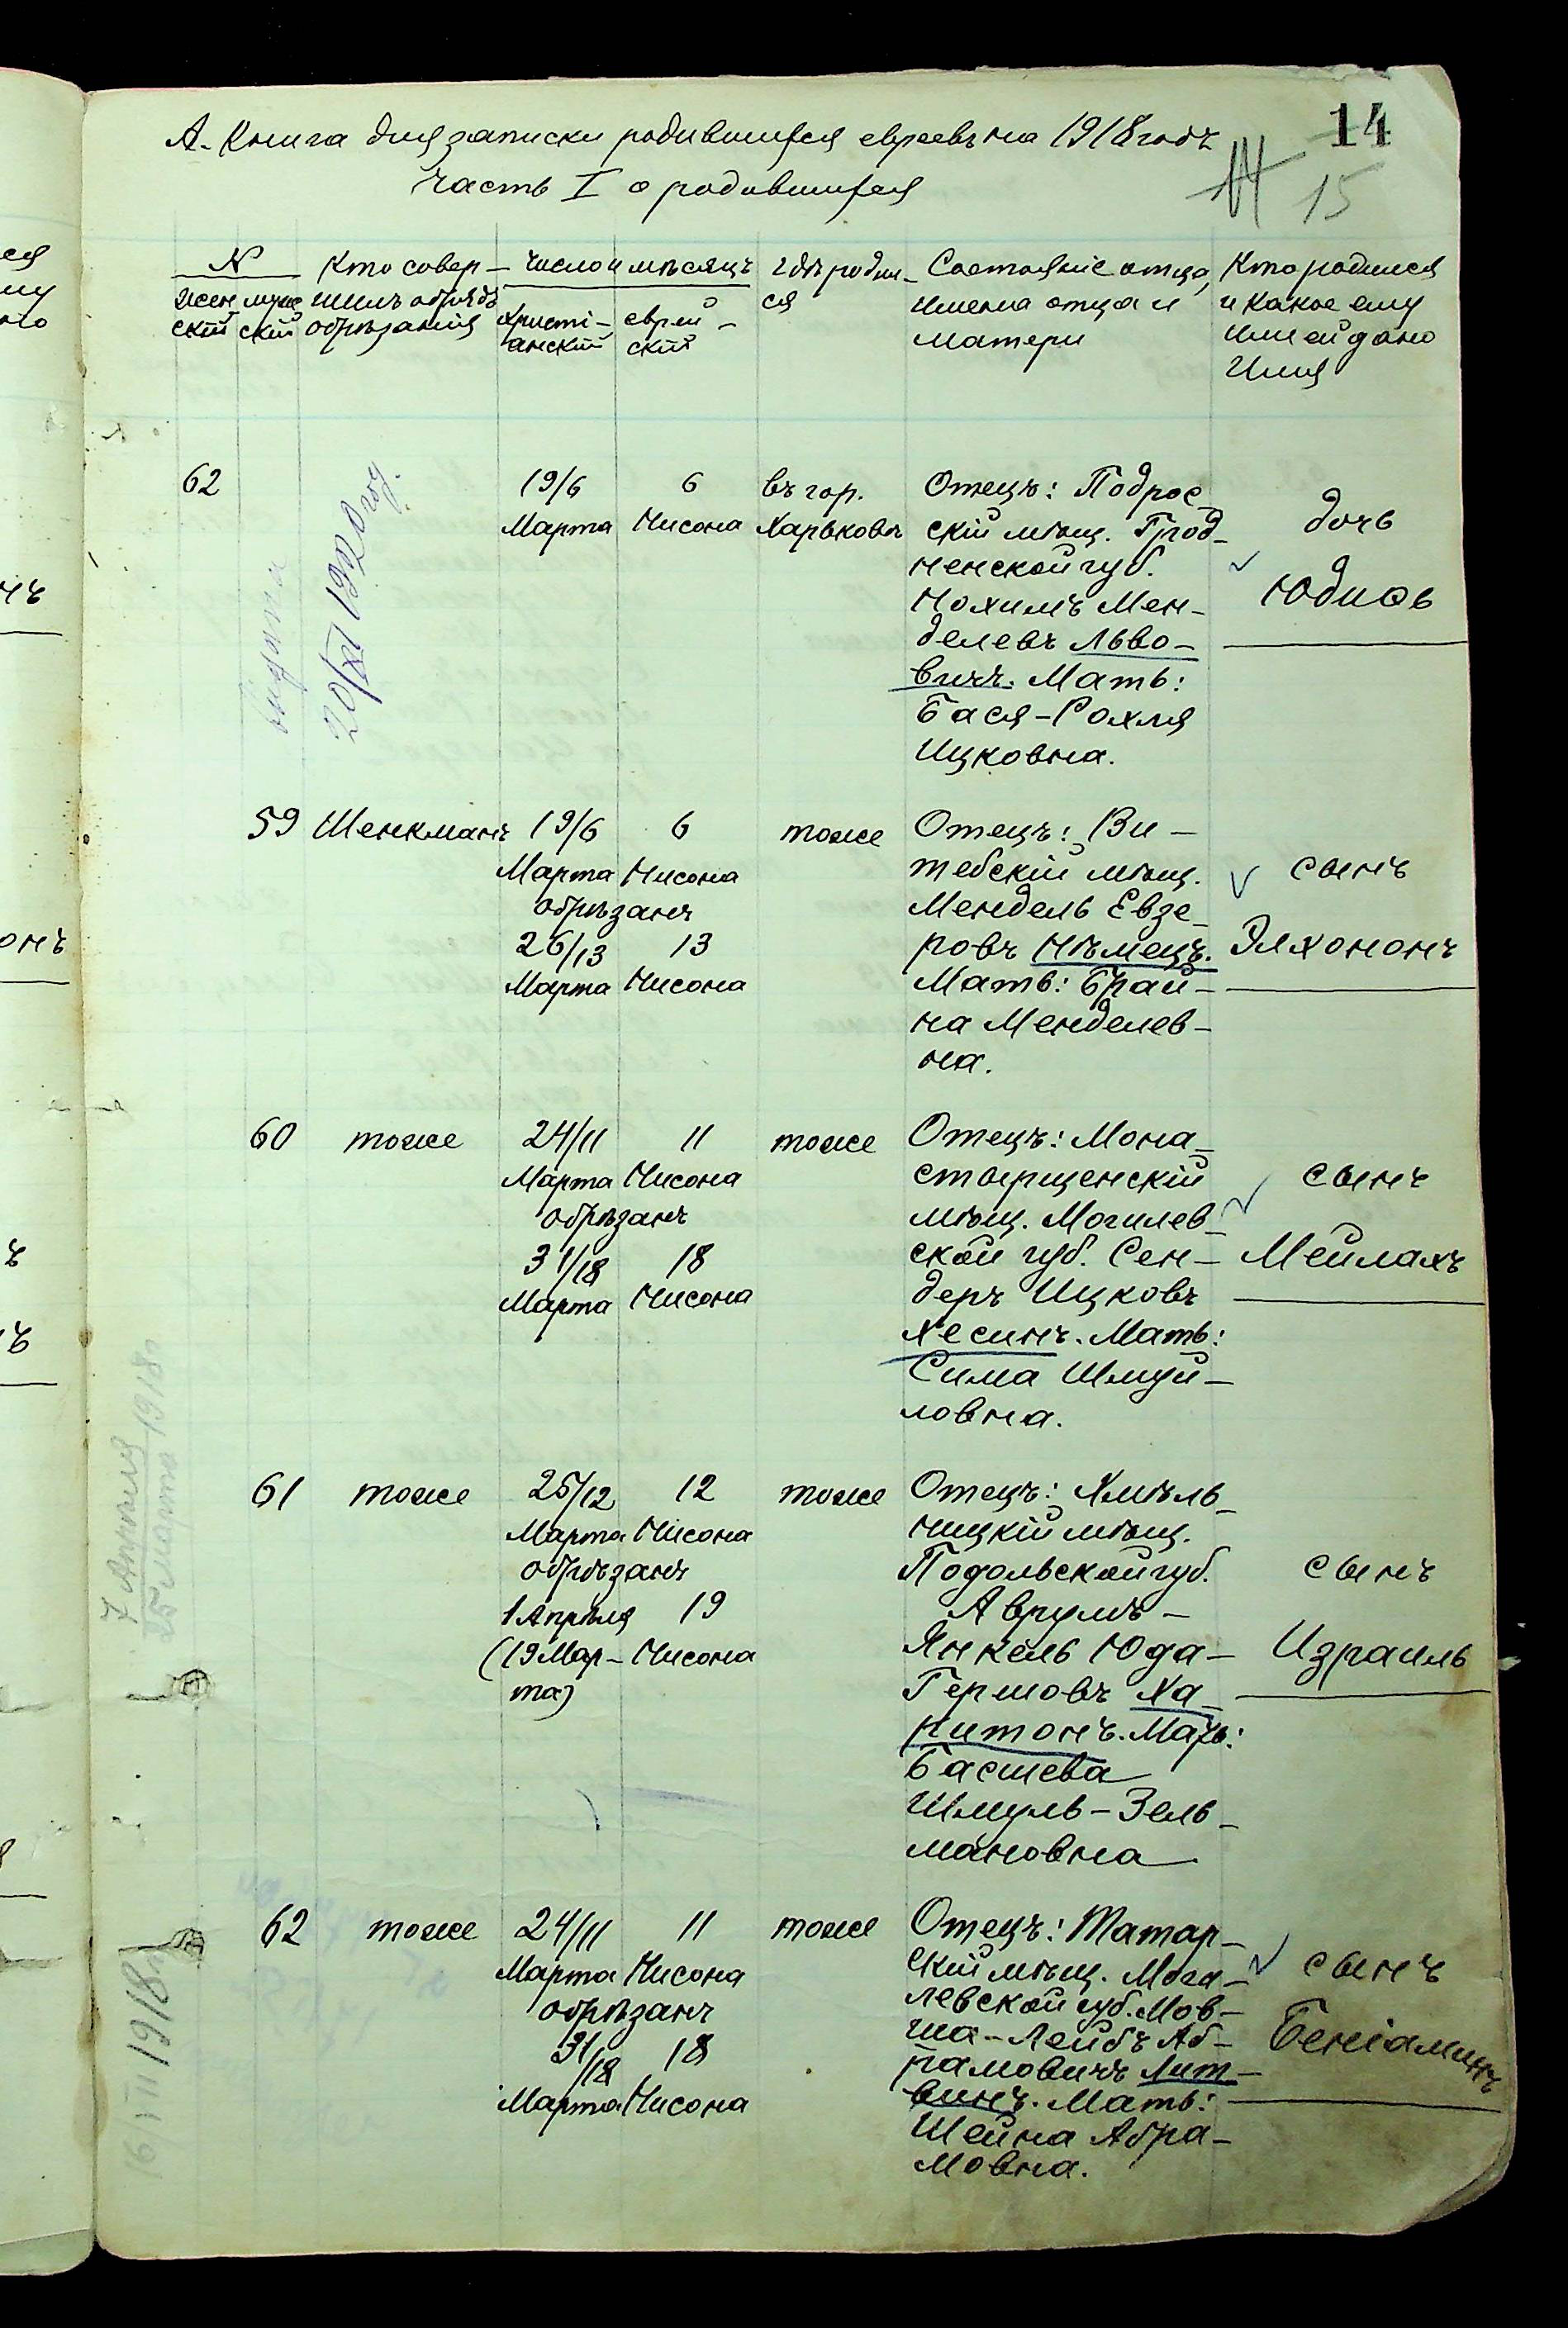 14
А. Книга для записки родившихся евреевъ на 1918 годъ
Часть I о родившихся
14 15
N
Жен муж
скій скій
Кто совер-
шилъ обрядъ
обрѣзанія
Число и мѣсяцъ
Христі-
анскій
еврей-
скій
Гдѣ родил-
ся
Состояніе отца,
имена отца и
матери
Кто родился
и какое ему
или ей дано
Имя
62
выдана
20/XI 1920 год.
19/6
Марта
6
Нисона
въ гор.
Харьковѣ
Отецъ: Подрос-
скій мѣщ. Грод-
ненской губ.
Нохимъ Мен-
делевъ Льво-
вичъ. Мать:
Бася-Рохля
Ицковна.
дочь
Юдифь
59
Шенкманъ
19/6
Марта
6
Нисона
обрѣзанъ
26/13
Марта
13
Нисона
тоже
Отецъ: Ви-
тебскій мѣщ.
Мендель Евзе-
ровъ Нѣмецъ.
Мать: Брай-
на Менделев-
на.
сынъ
Элхононъ
60
тоже
24/11
Марта
11
Нисона
обрѣзанъ
31/18
Марта
18
Нисона
тоже
Отецъ: Мона-
стырщенскій
мѣщ. Могилев-
ской губ. Сен-
деръ Ицковъ
Хесинъ. Мать:
Сима Шмуй-
ловна.
сынъ
Мейлахъ
7 Апрѣля
25 Марта 1918г
61
тоже
25/12
Марта
12
Нисона
обрѣзанъ
1 Апрѣля
(19 Мар-
та)
19
Нисона
тоже
Отецъ: Хмѣль-
ницкій мѣщ.
Подольской губ.
Аврумъ-
Янкель Юда-
Гершовъ Ха-
ритонъ. Мать:
Басшева
Шмуль-Зель-
мановна
сынъ
Израиль
16/VII 1918г
62
тоже
24/11
Марта
11
Нисона
обрѣзанъ
31/18
Марта
18
Нисона
тоже
Отецъ: Татар-
скій мѣщ. Моги-
левской губ. Мов-
ша-Лейбъ Аб-
рамовичъ Лит-
винъ. Мать:
Шейна Абра-
мовна.
сынъ
Беніаминъ